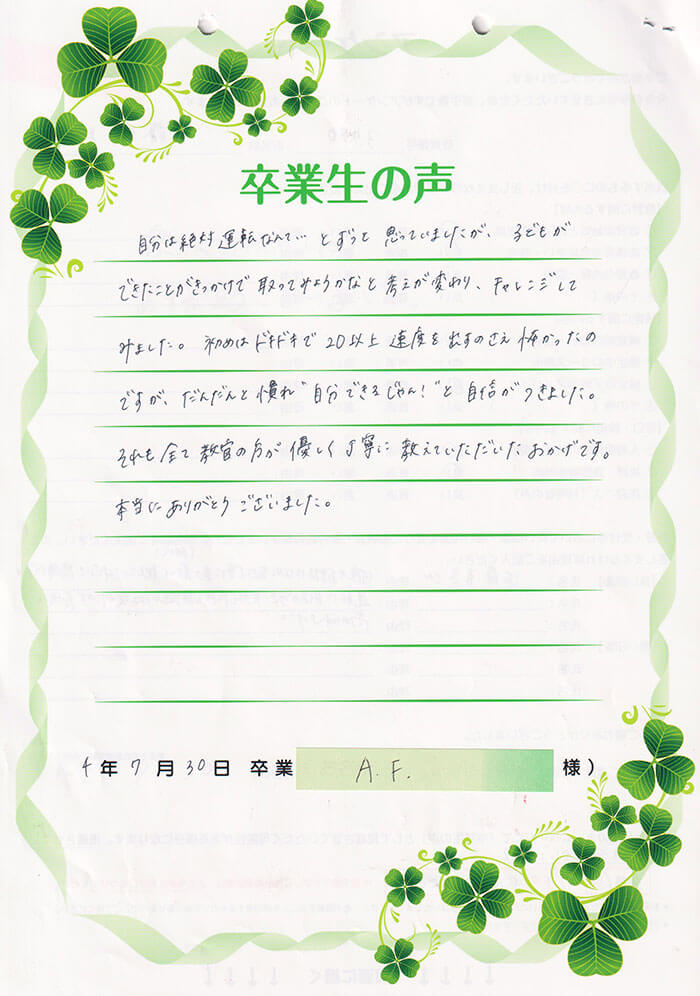 卒業生の声
自分は絶対運転なんて… とずっと思っていましたが、子どもが
できたことがきっかけで取ってみようかなと考えが変わり、チャレンジして
みました。初めはドキドキで20以上速度を出すのさえ怖かったの
ですが、だんだんと慣れ"自分できるじゃん!"と自信がつきました。
それも全て教官の方が優しく丁寧に教えていただいたおかげです。
本当にありがとうございました。
4年7月30日 卒業 A.F. 様)